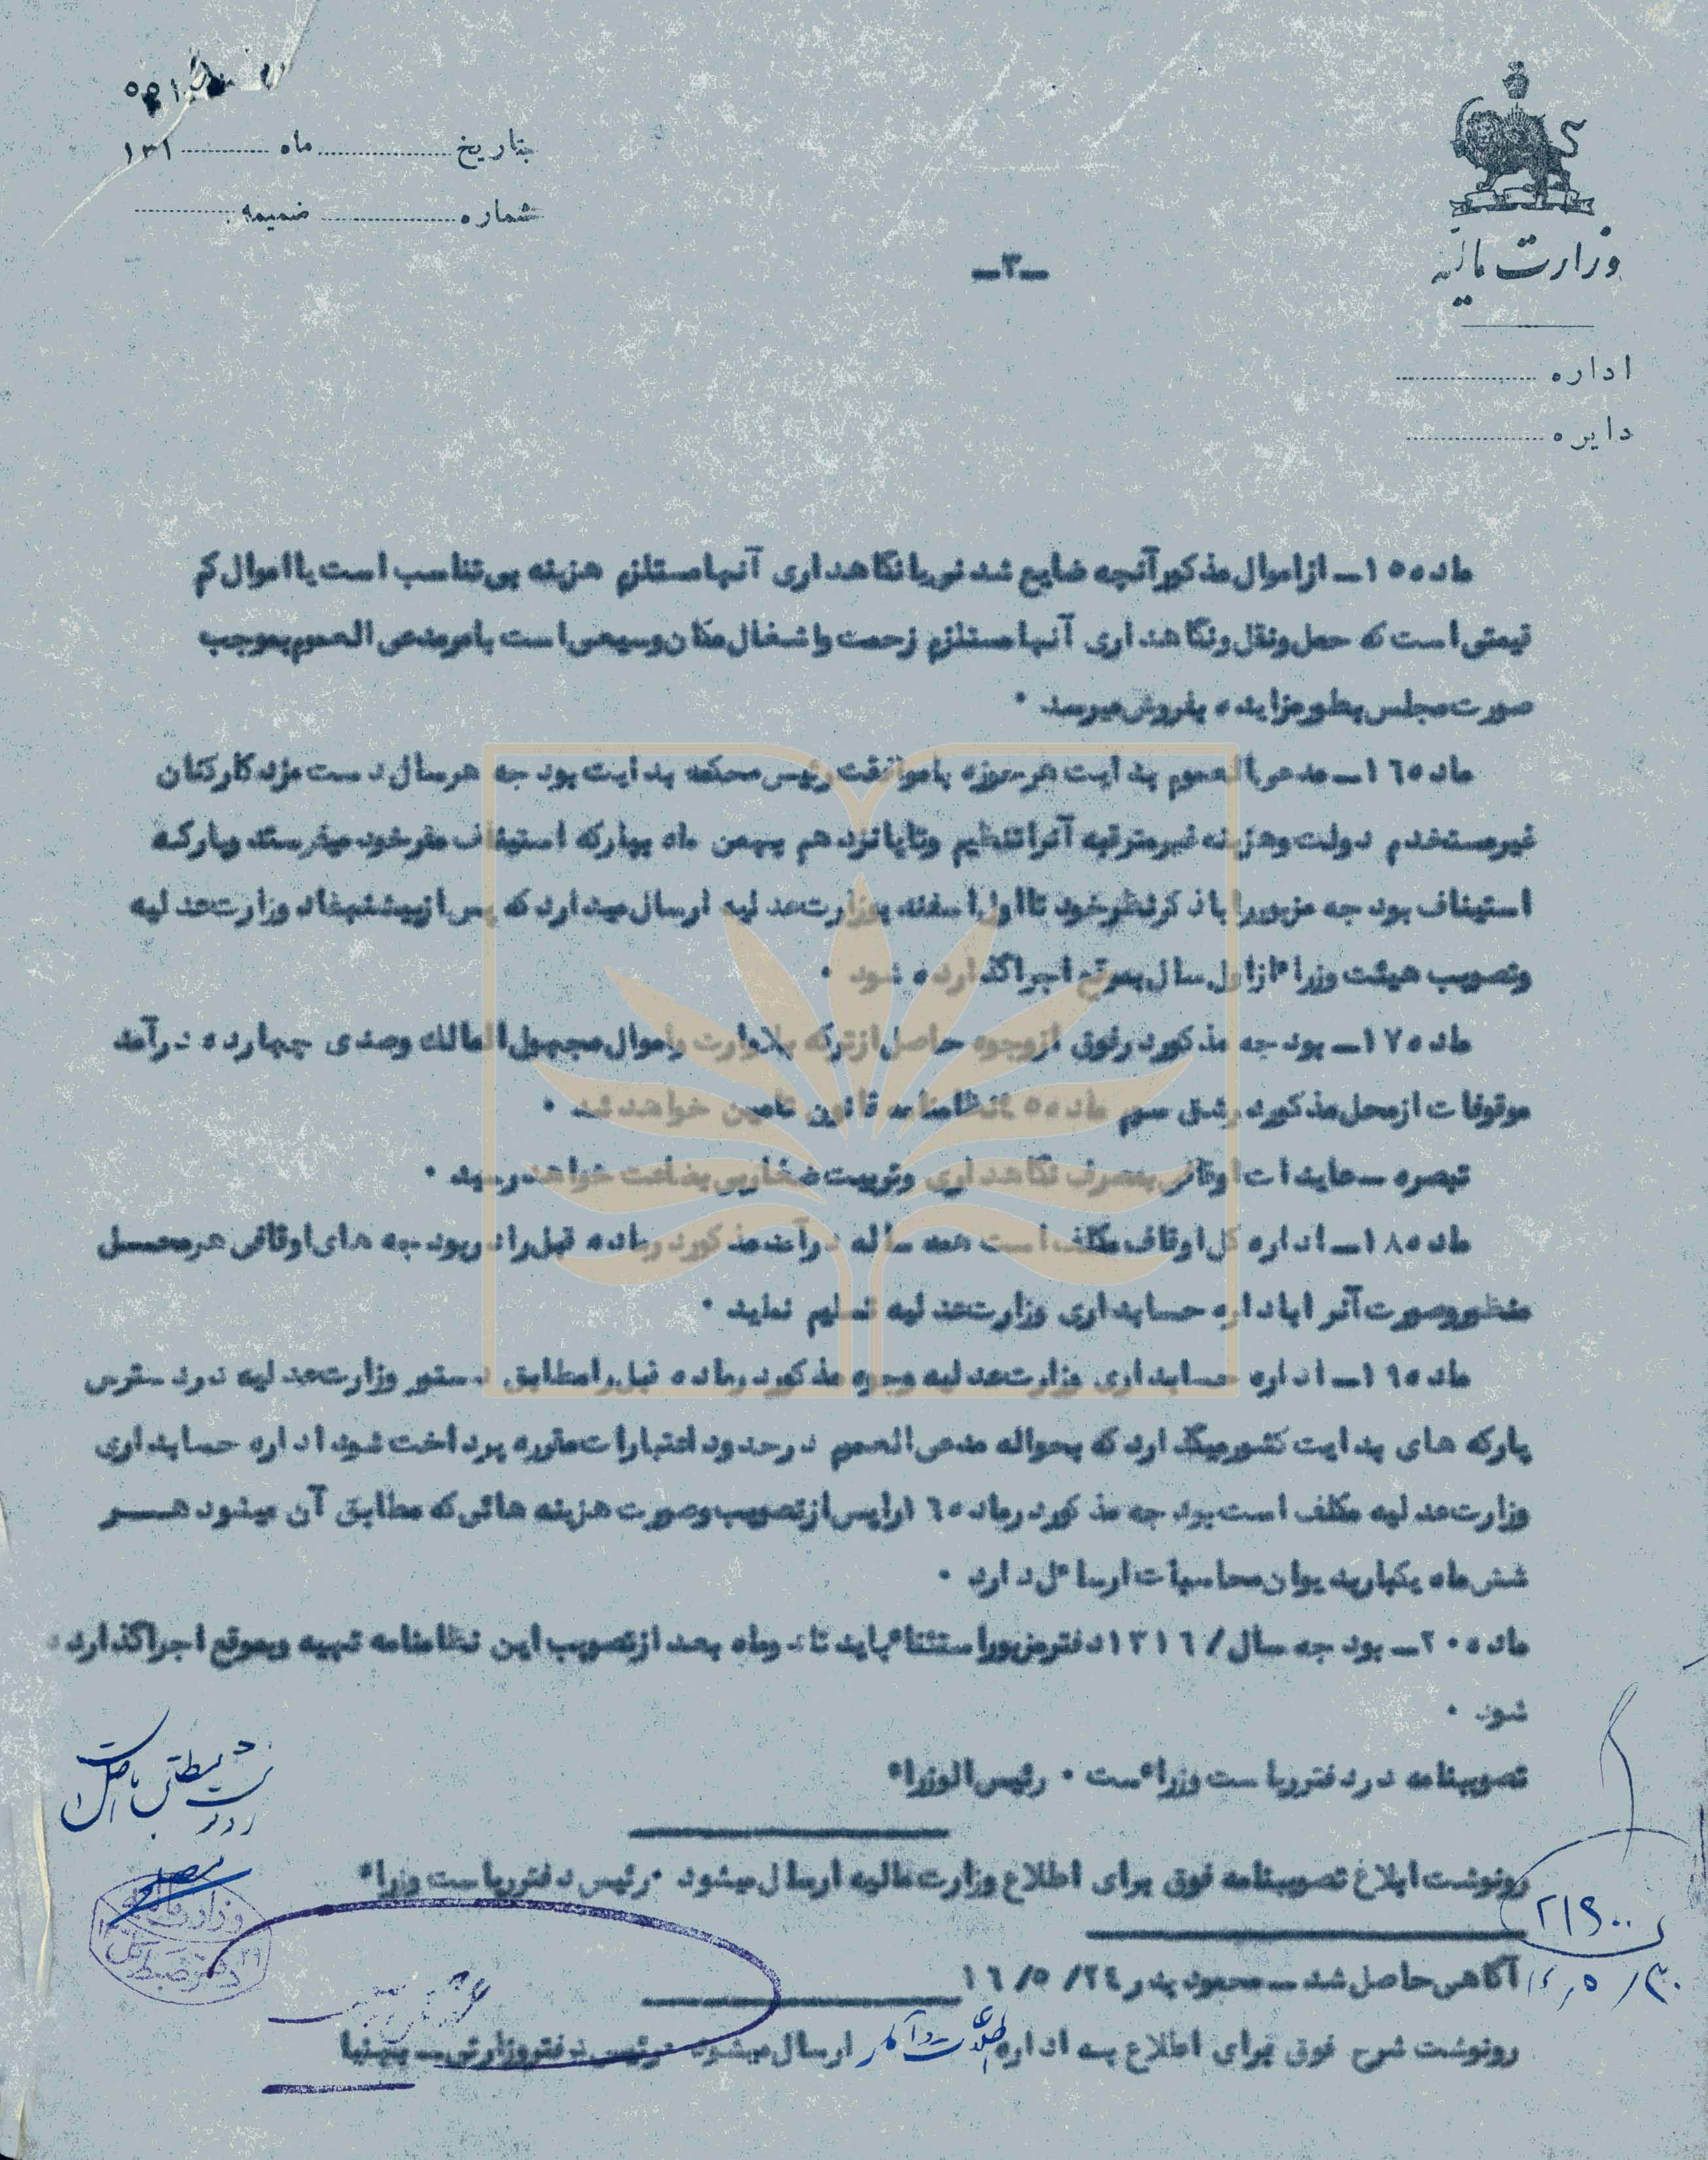 بتاریخ ............ ماه ............ ۱۳۱
شماره ............ ضمیمه ............
وزارت مالیه
اداره ............
دایره ............
ـ۳ـ
ماده ۱۵ـ ازاموال مذکور آنچه ضایع شدنی یا نگاهداری آنها مستلزم هزینه بی تناسب است یا اموال کم
قیمتی است که حمل و نقل و نگاهداری آنها مستلزم زحمت و اشغال مکان وسیعی است بامر مدعی العموم بموجب
صورت مجلس بطور مزایده بفروش میرسد ۰
ماده ۱۶ـ مدعی العموم بدایت هر حوزه با موافقت رئیس محکمه بدایت بودجه هرسال دست مزد کارکنان
غیر مستخدم دولت و هزینه غیر مترقبه آنرا تنظیم و تا پانزدهم بهمن ماه بپارکه استیناف مقر خود میفرستد و پارکه
استیناف بودجه مزبور را با ذکر نظر خود تا اول اسفند بوزارت عدلیه ارسال میدارد که پس از پیشنهاد وزارت عدلیه
و تصویب هیئت وزراء از اول سال بموقع اجرا گذارده شود ۰
ماده ۱۷ـ بودجه مذکور در فوق از وجوه حاصل از ترکه بلاوارث و اموال مجهول المالک و صدی چهارده درآمد
موقوفات از محل مذکور در شق سوم ماده ۵۵ نظامنامه قانون تامین خواهد شد ۰
تبصره ـ عایدات اوقافی بمصرف نگاهداری و تربیت صغار بی بضاعت خواهد رسید ۰
ماده ۱۸ـ اداره کل اوقاف مکلف است همه ساله درآمد مذکور در ماده قبل را در بودجه های اوقافی هر محل
منظور و صورت آنرا باداره حسابداری وزارت عدلیه تسلیم نماید ۰
ماده ۱۹ـ اداره حسابداری وزارت عدلیه وجوه مذکور در ماده قبل را مطابق دستور وزارت عدلیه در دسترس
پارکه های بدایت کشور میگذارد که بحواله مدعی العموم در حدود اعتبارات مقرره پرداخت شود اداره حسابداری
وزارت عدلیه مکلف است بودجه مذکور در ماده ۱۶ را پس از تصویب و صورت هزینه هائی که مطابق آن میشود هر
شش ماه یکبار بدیوان محاسبات ارسال دارد ۰
ماده ۲۰ـ بودجه سال / ۱۳۱۶ دفتر مزبور استثنائا باید تا دو ماه بعد از تصویب این نظامنامه تهیه و بموقع اجرا گذارده
شود ۰
تصویبنامه در دفتر ریاست وزراء است ۰ رئیس الوزراء
رونوشت ابلاغ تصویبنامه فوق برای اطلاع وزارت مالیه ارسال میشود ۰ رئیس دفتر ریاست وزراء
۲۱۹۰۰
آگاهی حاصل شد ـ محمود بدر ۲۴/ ۵/ ۱۶
رونوشت شرح فوق برای اطلاع به اداره ارسال میشود رئیس دفتر وزارتی ـ بینیا